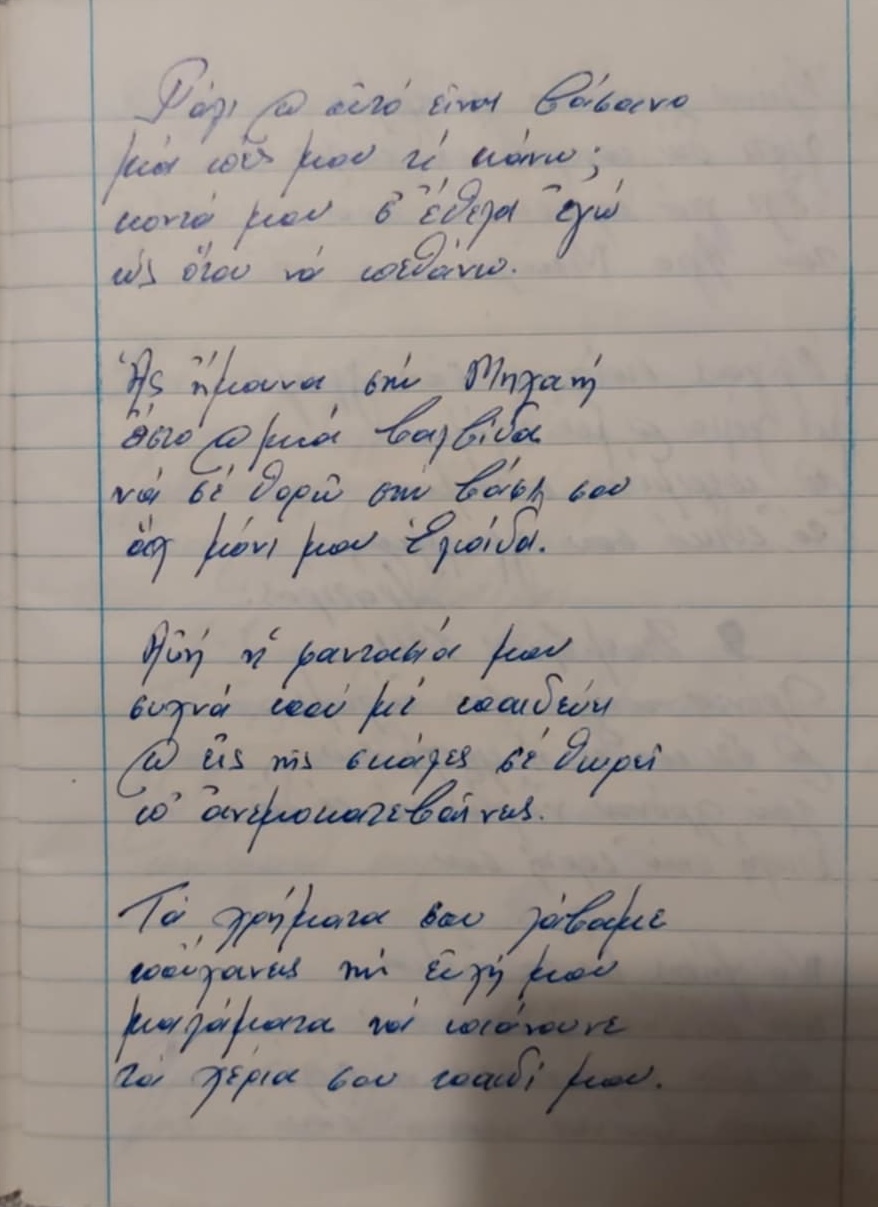 Ράλι ῶ αὐτό εἶναι βάσανο
μιά ποῦ μου τί κάνω;
κοντά μου σ' ἔθελα ἐγώ
ὡς ὅτου νά πεθάνω.
Ἄς ἤμουνα στήν Μηχανή
ἔστο ῶ μιά βαλβίδα
νά σέ θορῶ στήν βάση σου
ἄχ μόνι μου Ἐλπίδα.
Αὐτή ἡ φαντασία μου
συχνά πού μέ παιδεύη
ῶ εἰς τῆς σκάλες σέ θωρεῖ
π' ἀνεμοκατεβαίνεις.
Τά χρήματα σου λάβαμε
πούχανες τήν εὐχή μου
μαλάματα νά πιάνουνε
τά χέρια σου παιδί μου.